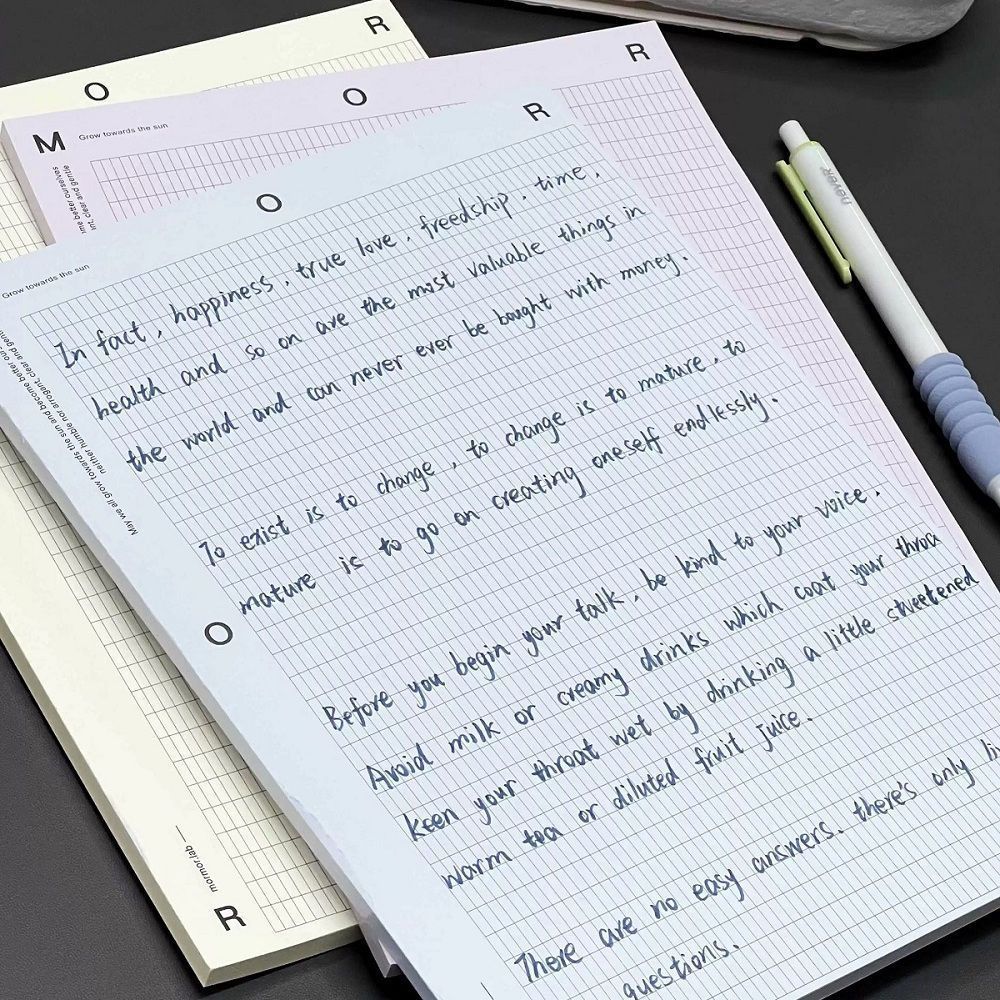 R
O
R
O
M
Grow towards the sun
R
O
Grow towards the sun
In fact, happiness, true love, freedship, time,
health and so on are the most valuable things in
the world and can never ever be bought with money.
To exist is to change, to change is to mature, to
mature is to go on creating oneself endlessly.
Before you begin your talk, be kind to your voice.
Avoid milk or creamy drinks which coat your throa
keen your throat wet by drinking a little sweetened
warm tea or diluted fruit juice.
There are no easy answers. there's only
questions.
May we all grow towards the sun and become better our
neither humble nor arrogant, clear and gentle
ime better ourselves
int, clear and gentle
O
mormor.lab
R
never